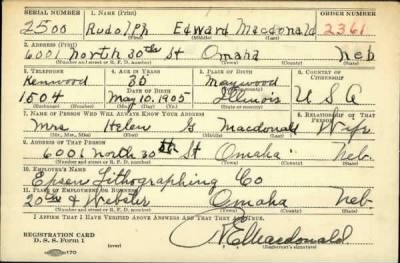 SERIAL NUMBER 1. NAME (Print) ORDER NUMBER
2500 Rudolph Edward Macdonald 2361
(First) (Middle) (Last)
2. ADDRESS (Print)
6001 North 30th St Omaha Neb
(Number and street or R. F. D. number) (Town) (County) (State)
3. TELEPHONE 4. AGE IN YEARS 5. PLACE OF BIRTH 6. COUNTRY OF CITIZENSHIP
Kenwood 35 Maywood
DATE OF BIRTH
1504 May 10, 1905 Illinois U S A
7. NAME OF PERSON WHO WILL ALWAYS KNOW YOUR ADDRESS 8. RELATIONSHIP OF THAT PERSON
Mrs Helen G Macdonald Wife
(Mr., Mrs., Miss) (First) (Middle) (Last)
9. ADDRESS OF THAT PERSON
6001 North 30th St Omaha Neb.
(Number and street or R. F. D. number) (Town) (County) (State)
10. EMPLOYER'S NAME
Epsen Lithographing Co
11. PLACE OF EMPLOYMENT OR BUSINESS
20th & Webster Omaha Neb.
(Number and street or R. F. D. number) (Town) (County) (State)
I AFFIRM THAT I HAVE VERIFIED ABOVE ANSWERS AND THAT THEY ARE TRUE.
REGISTRATION CARD
D. S. S. Form 1 (over) R E Macdonald
(Registrant's signature)